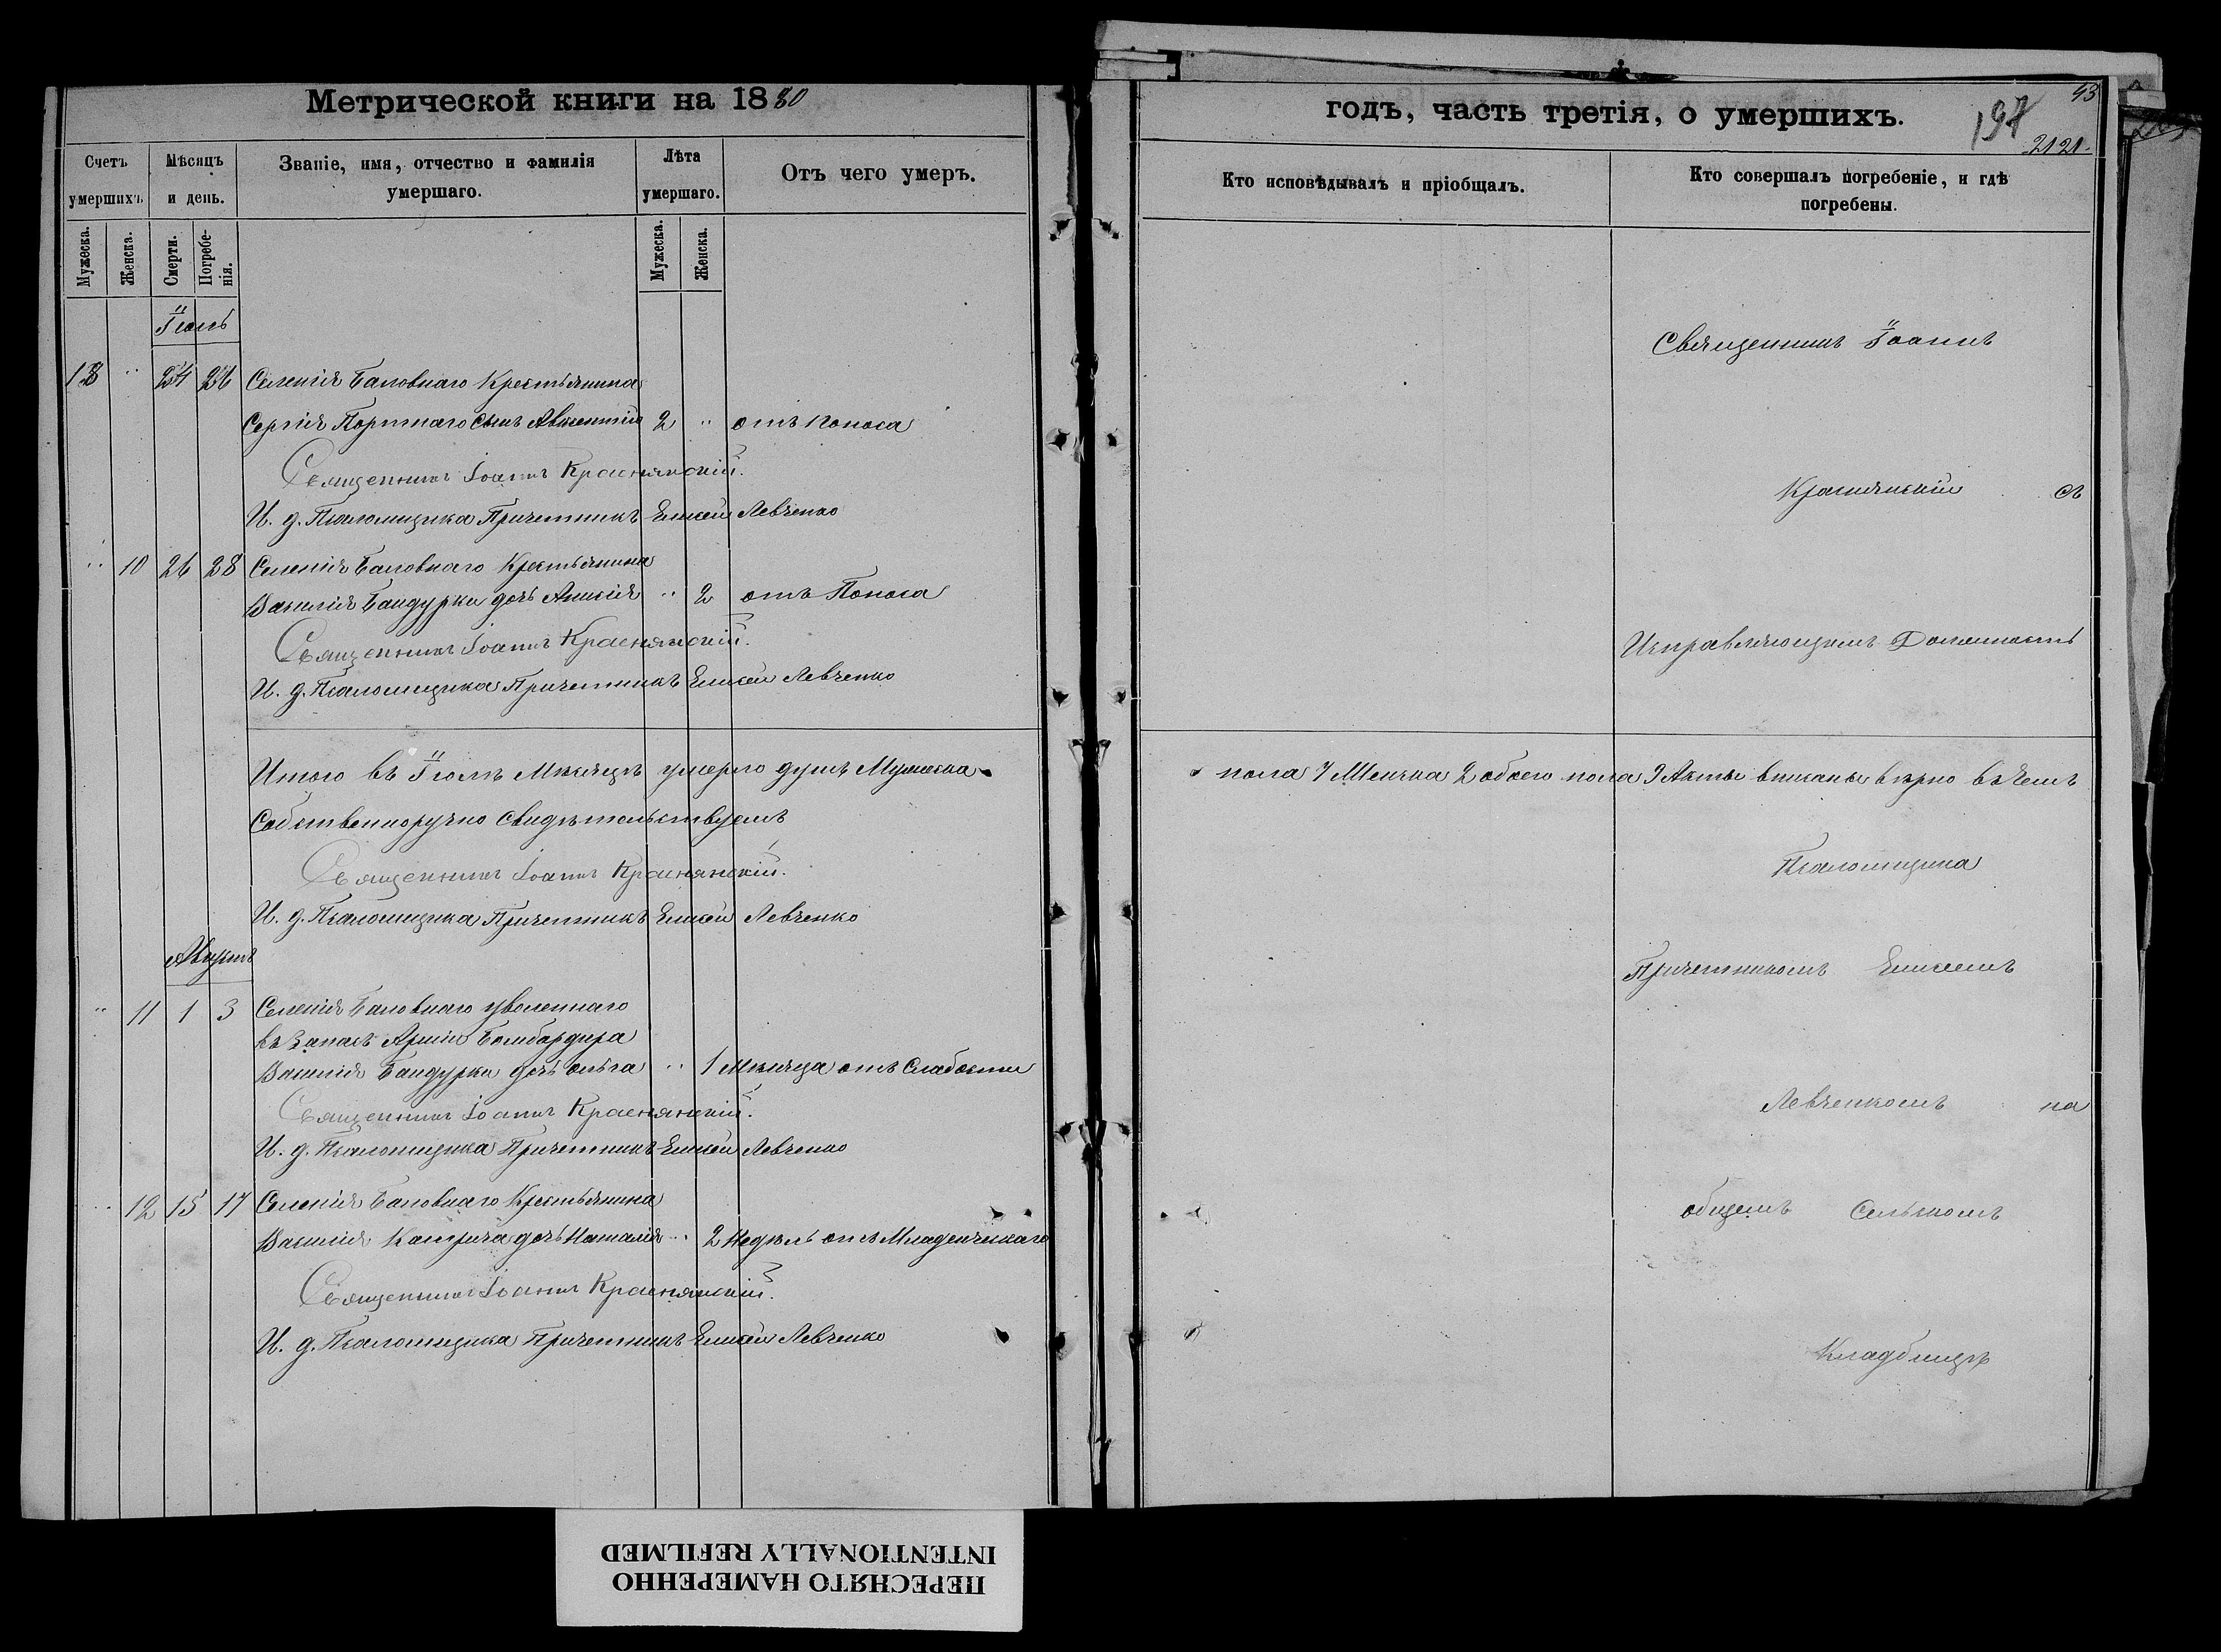 Метрической книги на 1880
Счетъ умершихъ
Мѣсяцъ и день.
Званіе, имя, отчество и фамилія умершаго.
Лѣта умершаго.
Отъ чего умеръ.
Мужеска.
Женска.
Смерти.
Погребенія.
Мужеска.
Женска.
Іюль
13 " 24 26 Селенія Баловнаго Крестьянина
Сергія Портнаго сынъ Авксентій 2 " отъ Поноса
Священникъ Іоаннъ Краснянскій.
И. д. Псаломщика Причетникъ Елисей Левченко
" 10 26 28 Селенія Баловнаго Крестьянина
Василія Бандурки дочь Анисія " 2 отъ Поноса
Священникъ Іоаннъ Краснянскій.
И. д. Псаломщика Причетникъ Елисей Левченко
Итого въ Іюлѣ Мѣсяцѣ умерло душъ Мужеска
Собственноручно свидѣтельствуемъ
Священникъ Іоаннъ Краснянскій.
И. д. Псаломщика Причетникъ Елисей Левченко
Августъ
" 11 1 3 Селенія Баловнаго уволеннаго
въ Запасъ Арміи Бомбардира
Василія Бандурки дочь Ольга " 1 Мѣсяца отъ Слабости
Священникъ Іоаннъ Краснянскій.
И. д. Псаломщика Причетникъ Елисей Левченко
" 12 15 17 Селенія Баловнаго Крестьянина
Василія дочь Наталія " 2 Недѣль отъ Младенческаго
Священникъ Іоаннъ Краснянскій.
И. д. Псаломщика Причетникъ Елисей Левченко
годъ, часть третія, о умершихъ.
43
197
2121.
Кто исповѣдывалъ и пріобщалъ.
Кто совершалъ погребеніе, и гдѣ погребены.
Священникъ Іоаннъ
Краснянскій съ
Исправляющимъ Должность
пола 7 Женска 2 обоего пола 9 Акты вписаны вѣрно въ чемъ
Псаломщика
Причетникомъ Елисеемъ
Левченкомъ на
общемъ Сельскомъ
Кладбищѣ
ПЕРЕСНЯТО НАМЕРЕННО
INTENTIONALLY REFILMED